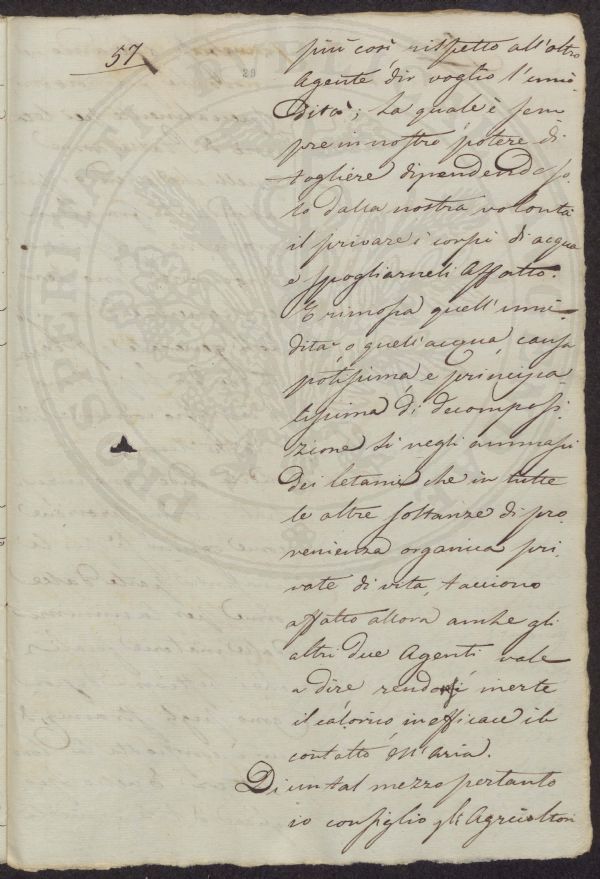 57
29
più così rispetto all'altro
Agente dir voglio l'umi-
dità; La quale è sem
pre in nostro potere di
togliere dipendendo so-
lo dalla nostra volontà
il privare i corpi di acqua
e spogliarneli affatto.
E rimossa quell'umi-
dità o quell'acqua causa
potissima e principa-
lissima di decomposi
zione sì negli ammassi
dei letami che in tutte
le altre sostanze di pro-
venienza organica pri-
vate di vita, tacciono
affatto allora anche gli
altri due Agenti vale
a dire rendesi inerte
il calorico inefficace il
contatto dell'aria.
Di un tal mezzo pertanto
io consiglio gli Agricoltori